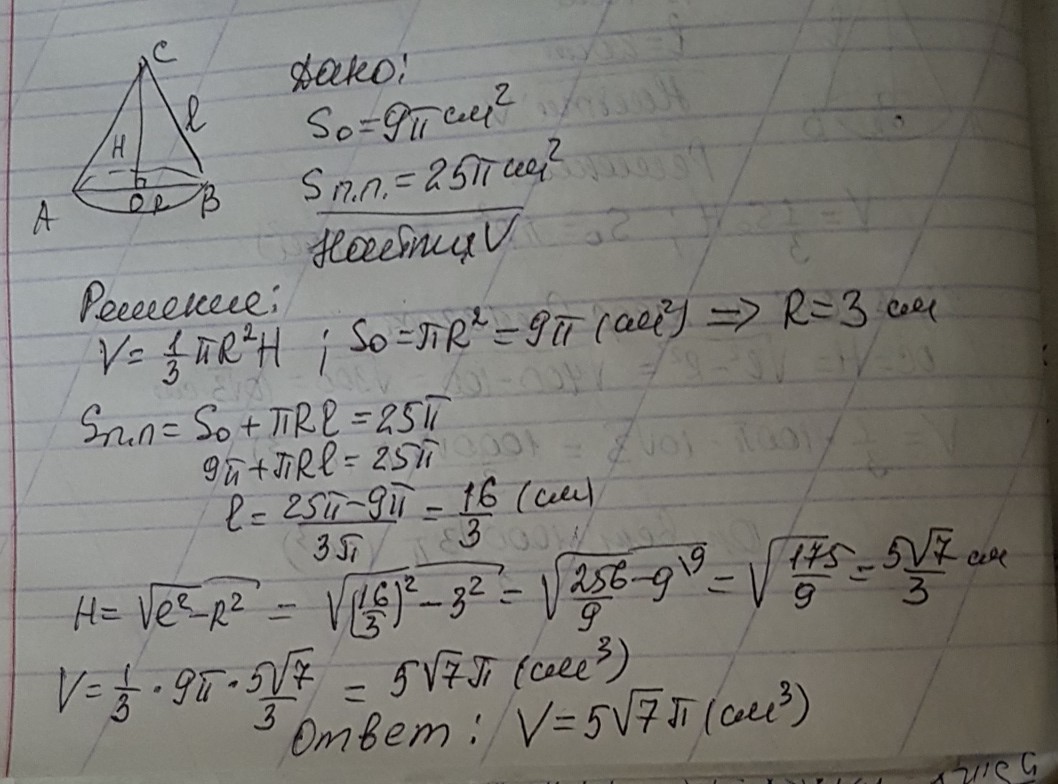 C
l
H
A
O R
B
Дано:
S₀ = 9π см²
Sп.п. = 25π см²
Найти V
Решение:
V = 1/3 πR²H ; S₀ = πR² = 9π (см²) => R = 3 см
Sп.п = S₀ + πRl = 25π
9π + πRl = 25π
l = (25π - 9π)/3π = 16/3 (см)
H = √(l² - R²) = √((16/3)² - 3²) = √(256/9 - 9\9) = √(175/9) = 5√7/3 см
V = 1/3 · 9π · 5√7/3 = 5√7π (см³)
Ответ: V = 5√7π (см³)